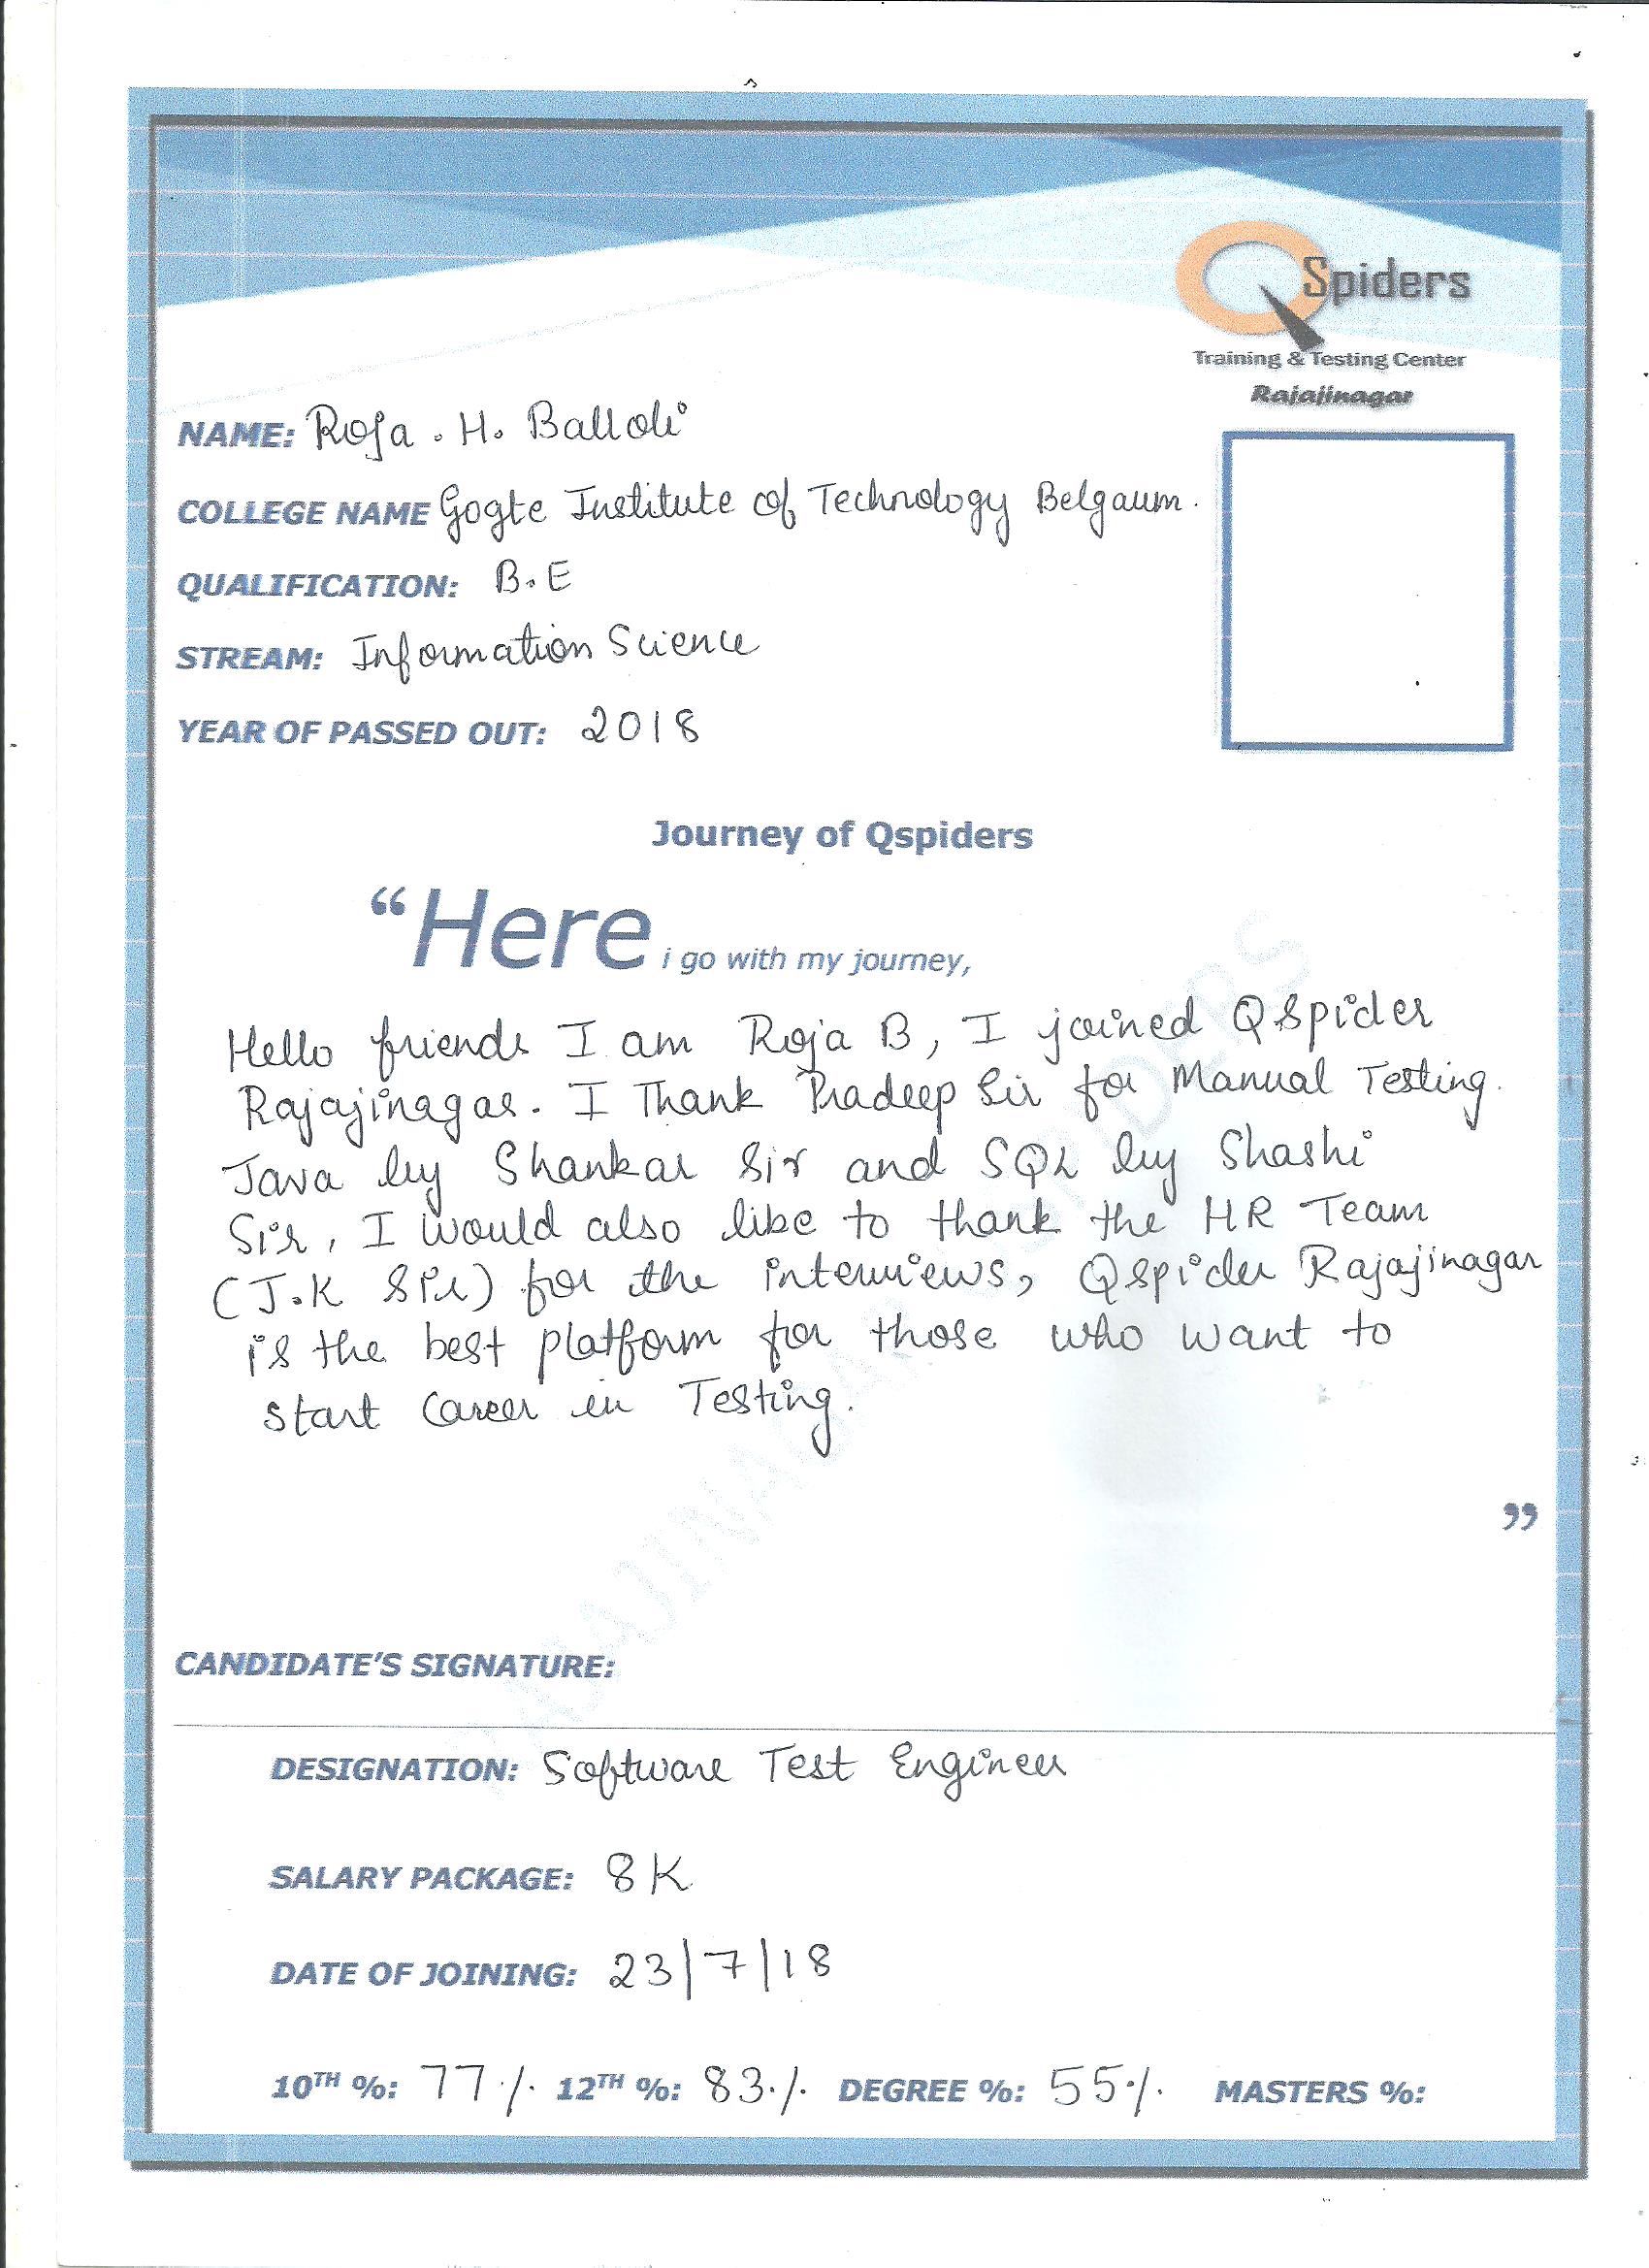 QSpiders
Training & Testing Center
Rajajinagar
NAME: Roja . H. Balloli
COLLEGE NAME Gogte Institute of Technology Belgaum.
QUALIFICATION: B.E
STREAM: Information Science
YEAR OF PASSED OUT: 2018
Journey of Qspiders
“Here i go with my journey,
Hello friends I am Roja B, I joined QSpider
Rajajinagar. I Thank Pradeep Sir for Manual Testing.
Java by Shankar Sir and SQL by Shashi
Sir, I would also like to thank the HR Team
(J.K Sir) for the interviews, Qspider Rajajinagar
is the best platform for those who want to
start Career in Testing.
”
CANDIDATE'S SIGNATURE:
DESIGNATION: Software Test Engineer
SALARY PACKAGE: 8K
DATE OF JOINING: 23/7/18
10TH %: 77% 12TH %: 83% DEGREE %: 55% MASTERS %: